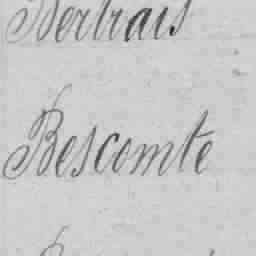 Bertrais
Bescomte